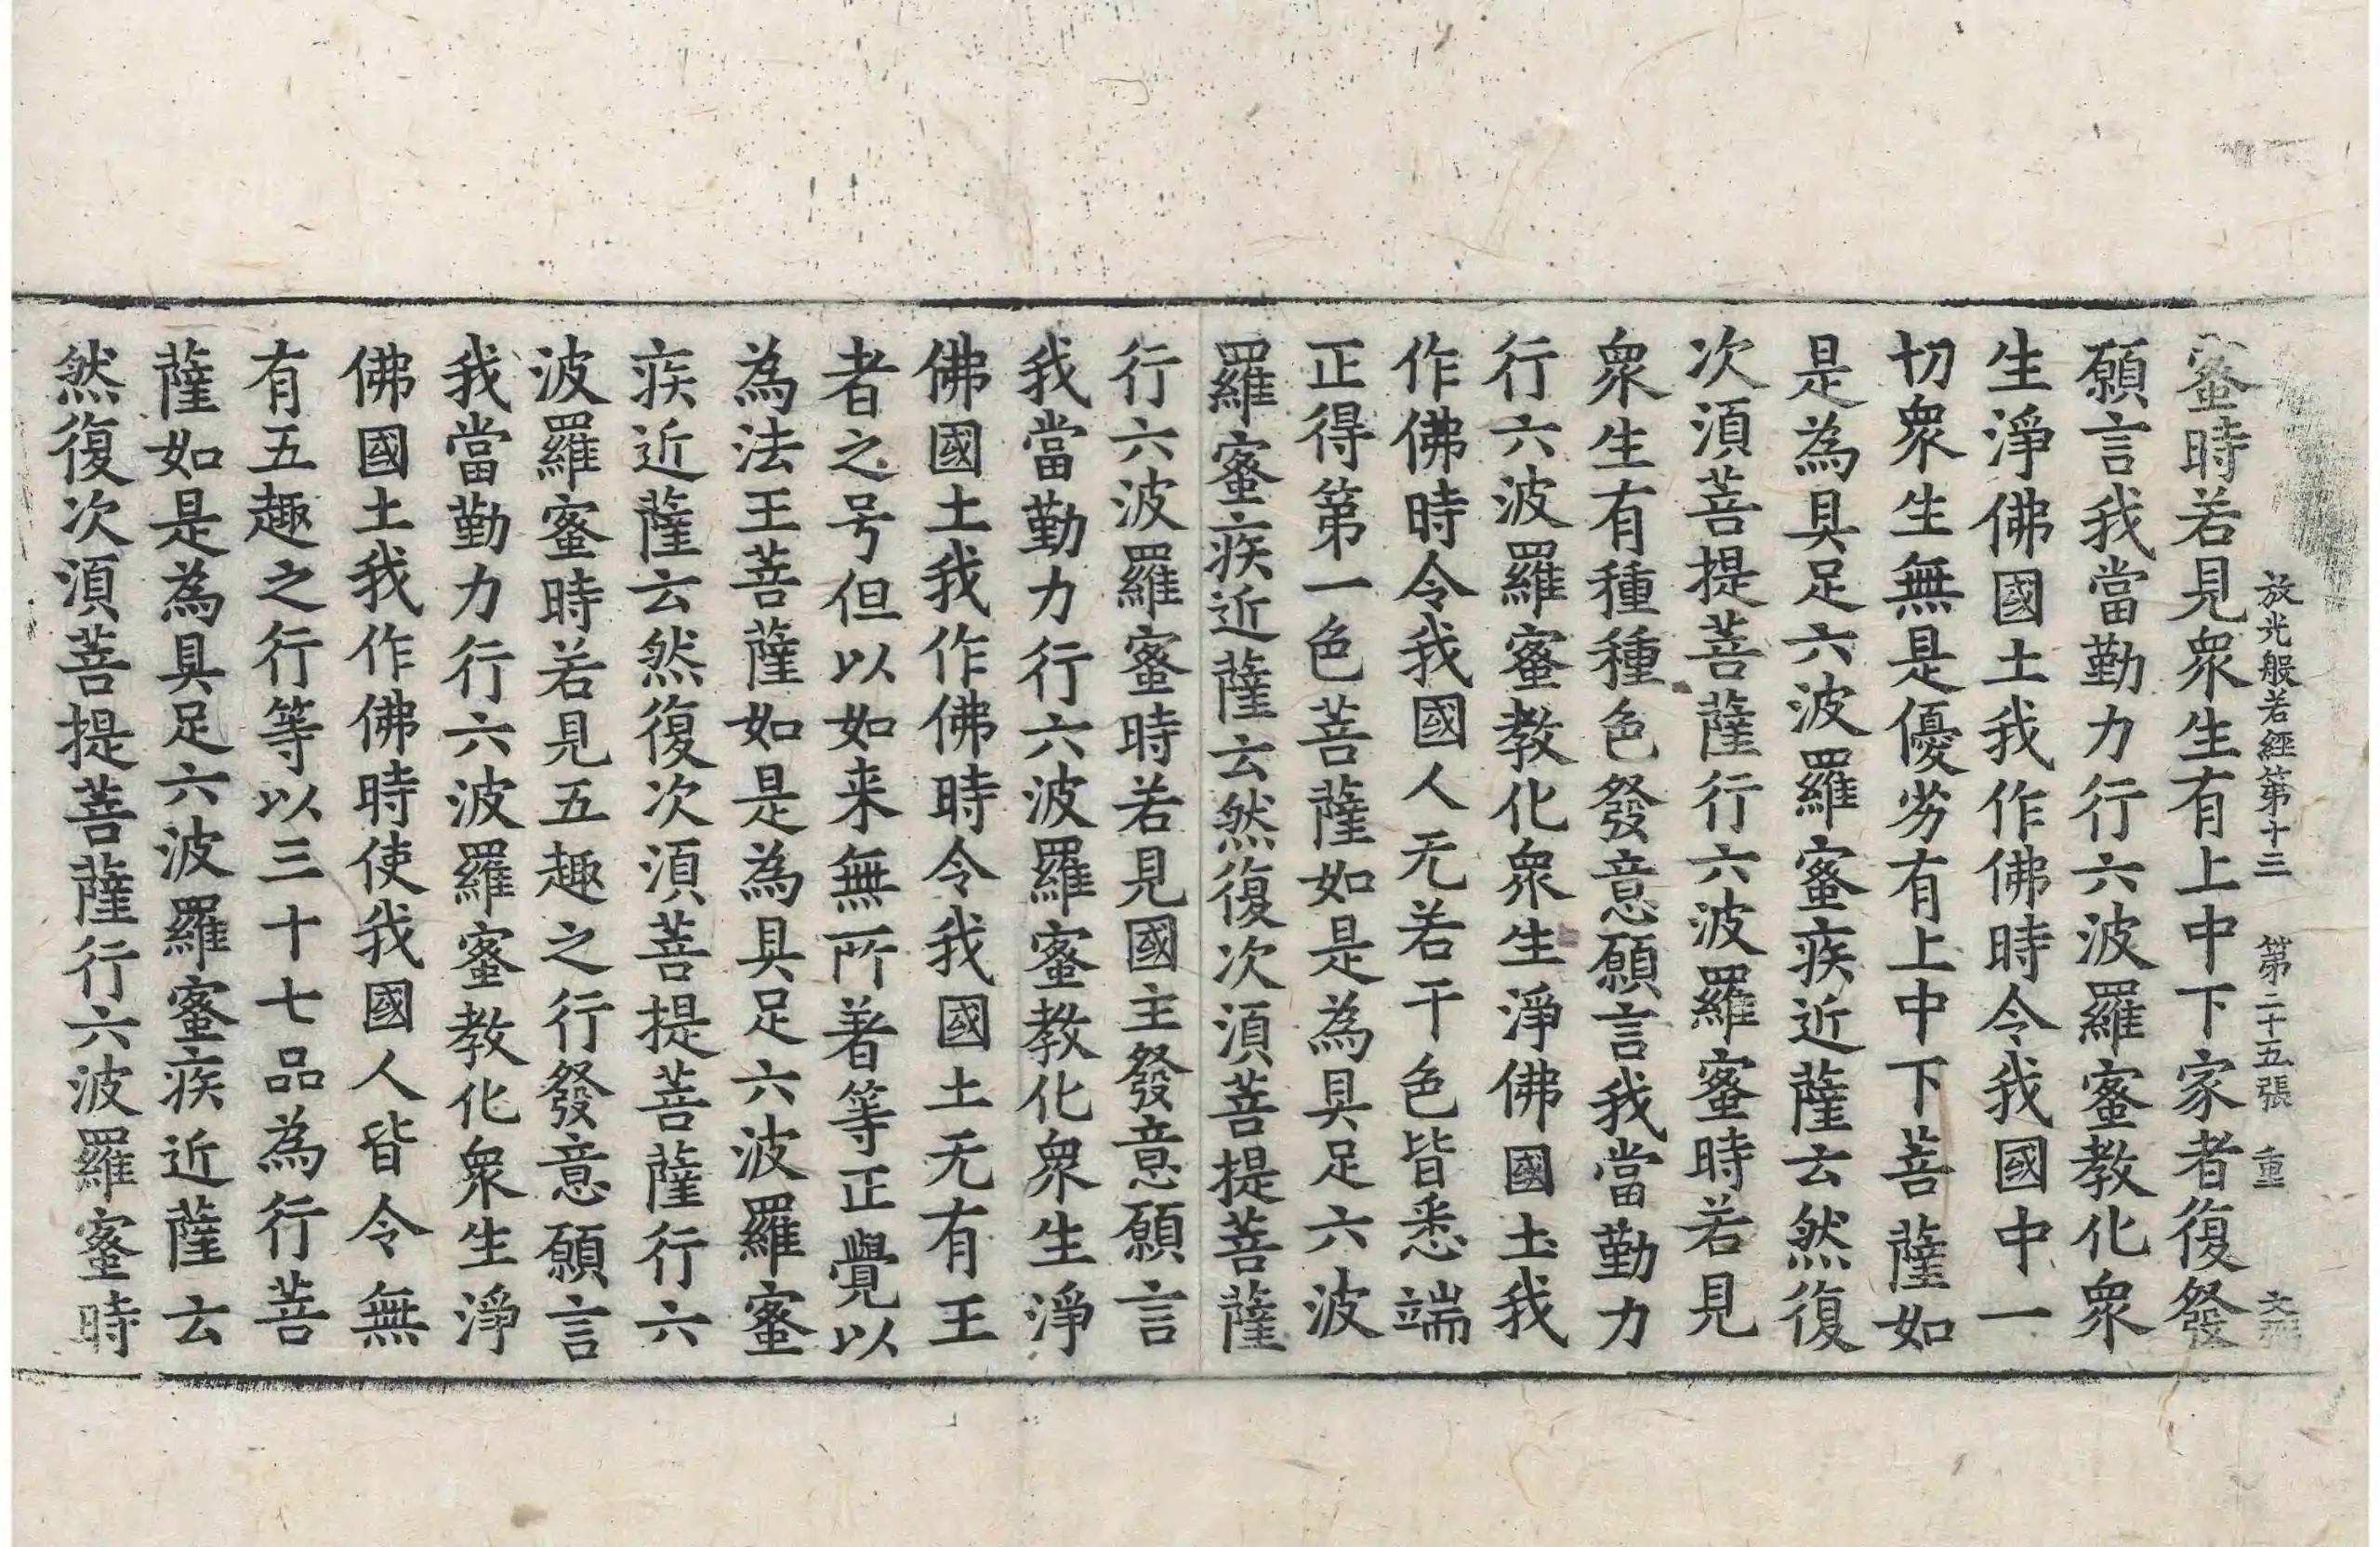 放光般若經第十三 第二十五張 重
蜜時若見衆生有上中下家者復發
願言我當勤力行六波羅蜜教化衆
生淨佛國土我作佛時令我國中一
切衆生無是優劣有上中下菩薩如
是為具足六波羅蜜疾近薩云然復
次須菩提菩薩行六波羅蜜時若見
衆生有種種色發意願言我當勤力
行六波羅蜜教化衆生淨佛國土我
作佛時令我國人无若干色皆悉端
正得第一色菩薩如是為具足六波
羅蜜疾近薩云然復次須菩提菩薩
行六波羅蜜時若見國主發意願言
我當勤力行六波羅蜜教化衆生淨
佛國土我作佛時令我國土无有王
者之号但以如来無所著等正覺以
為法王菩薩如是為具足六波羅蜜
疾近薩云然復次須菩提菩薩行六
波羅蜜時若見五趣之行發意願言
我當勤力行六波羅蜜教化衆生淨
佛國土我作佛時使我國人皆令無
有五趣之行等以三十七品為行菩
薩如是為具足六波羅蜜疾近薩云
然復次須菩提菩薩行六波羅蜜時